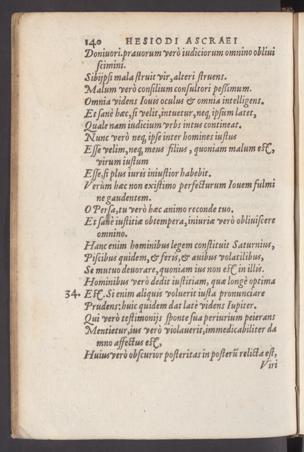 140 HESIODI ASCRAEI
Doniuori. prauorum verò iudiciorum omnino obliui
scimini.
Sibijpsi mala struit vir, alteri struens.
Malum verò consilium consultori pessimum.
Omnia videns Iouis oculus & omnia intelligens.
Et sanè hæc, si velit, intuetur, neq; ipsum latet,
Quale nam iudicium vrbs intus contineat.
Nunc verò neq; ipse inter homines iustus
Esse velim, neq; meus filius, quoniam malum est,
virum iustum
Esse, si plus iuris iniustior habebit.
Verum hæc non existimo perfecturum Iouem fulmi
ne gaudentem.
O Persa, tu verò hæc animo reconde tuo.
Et sanè iustitiæ obtempera, iniuriæ verò obliuiscere
omnino.
Hanc enim hominibus legem constituit Saturnius,
Piscibus quidem, & feris, & auibus volatilibus,
Se mutuo deuorare, quoniam ius non est in illis.
Hominibus verò dedit iustitiam, quæ longè optima
34. Est. Si enim aliquis voluerit iusta pronunciare
Prudens: huic quidem dat latè videns Iupiter.
Qui verò testimonijs sponte sua periurium peierans
Mentietur, ius verò violauerit, immedicabiliter da
mno affectus est,
Huius verò obscurior posteritas in posterũ relicta est,
Viri